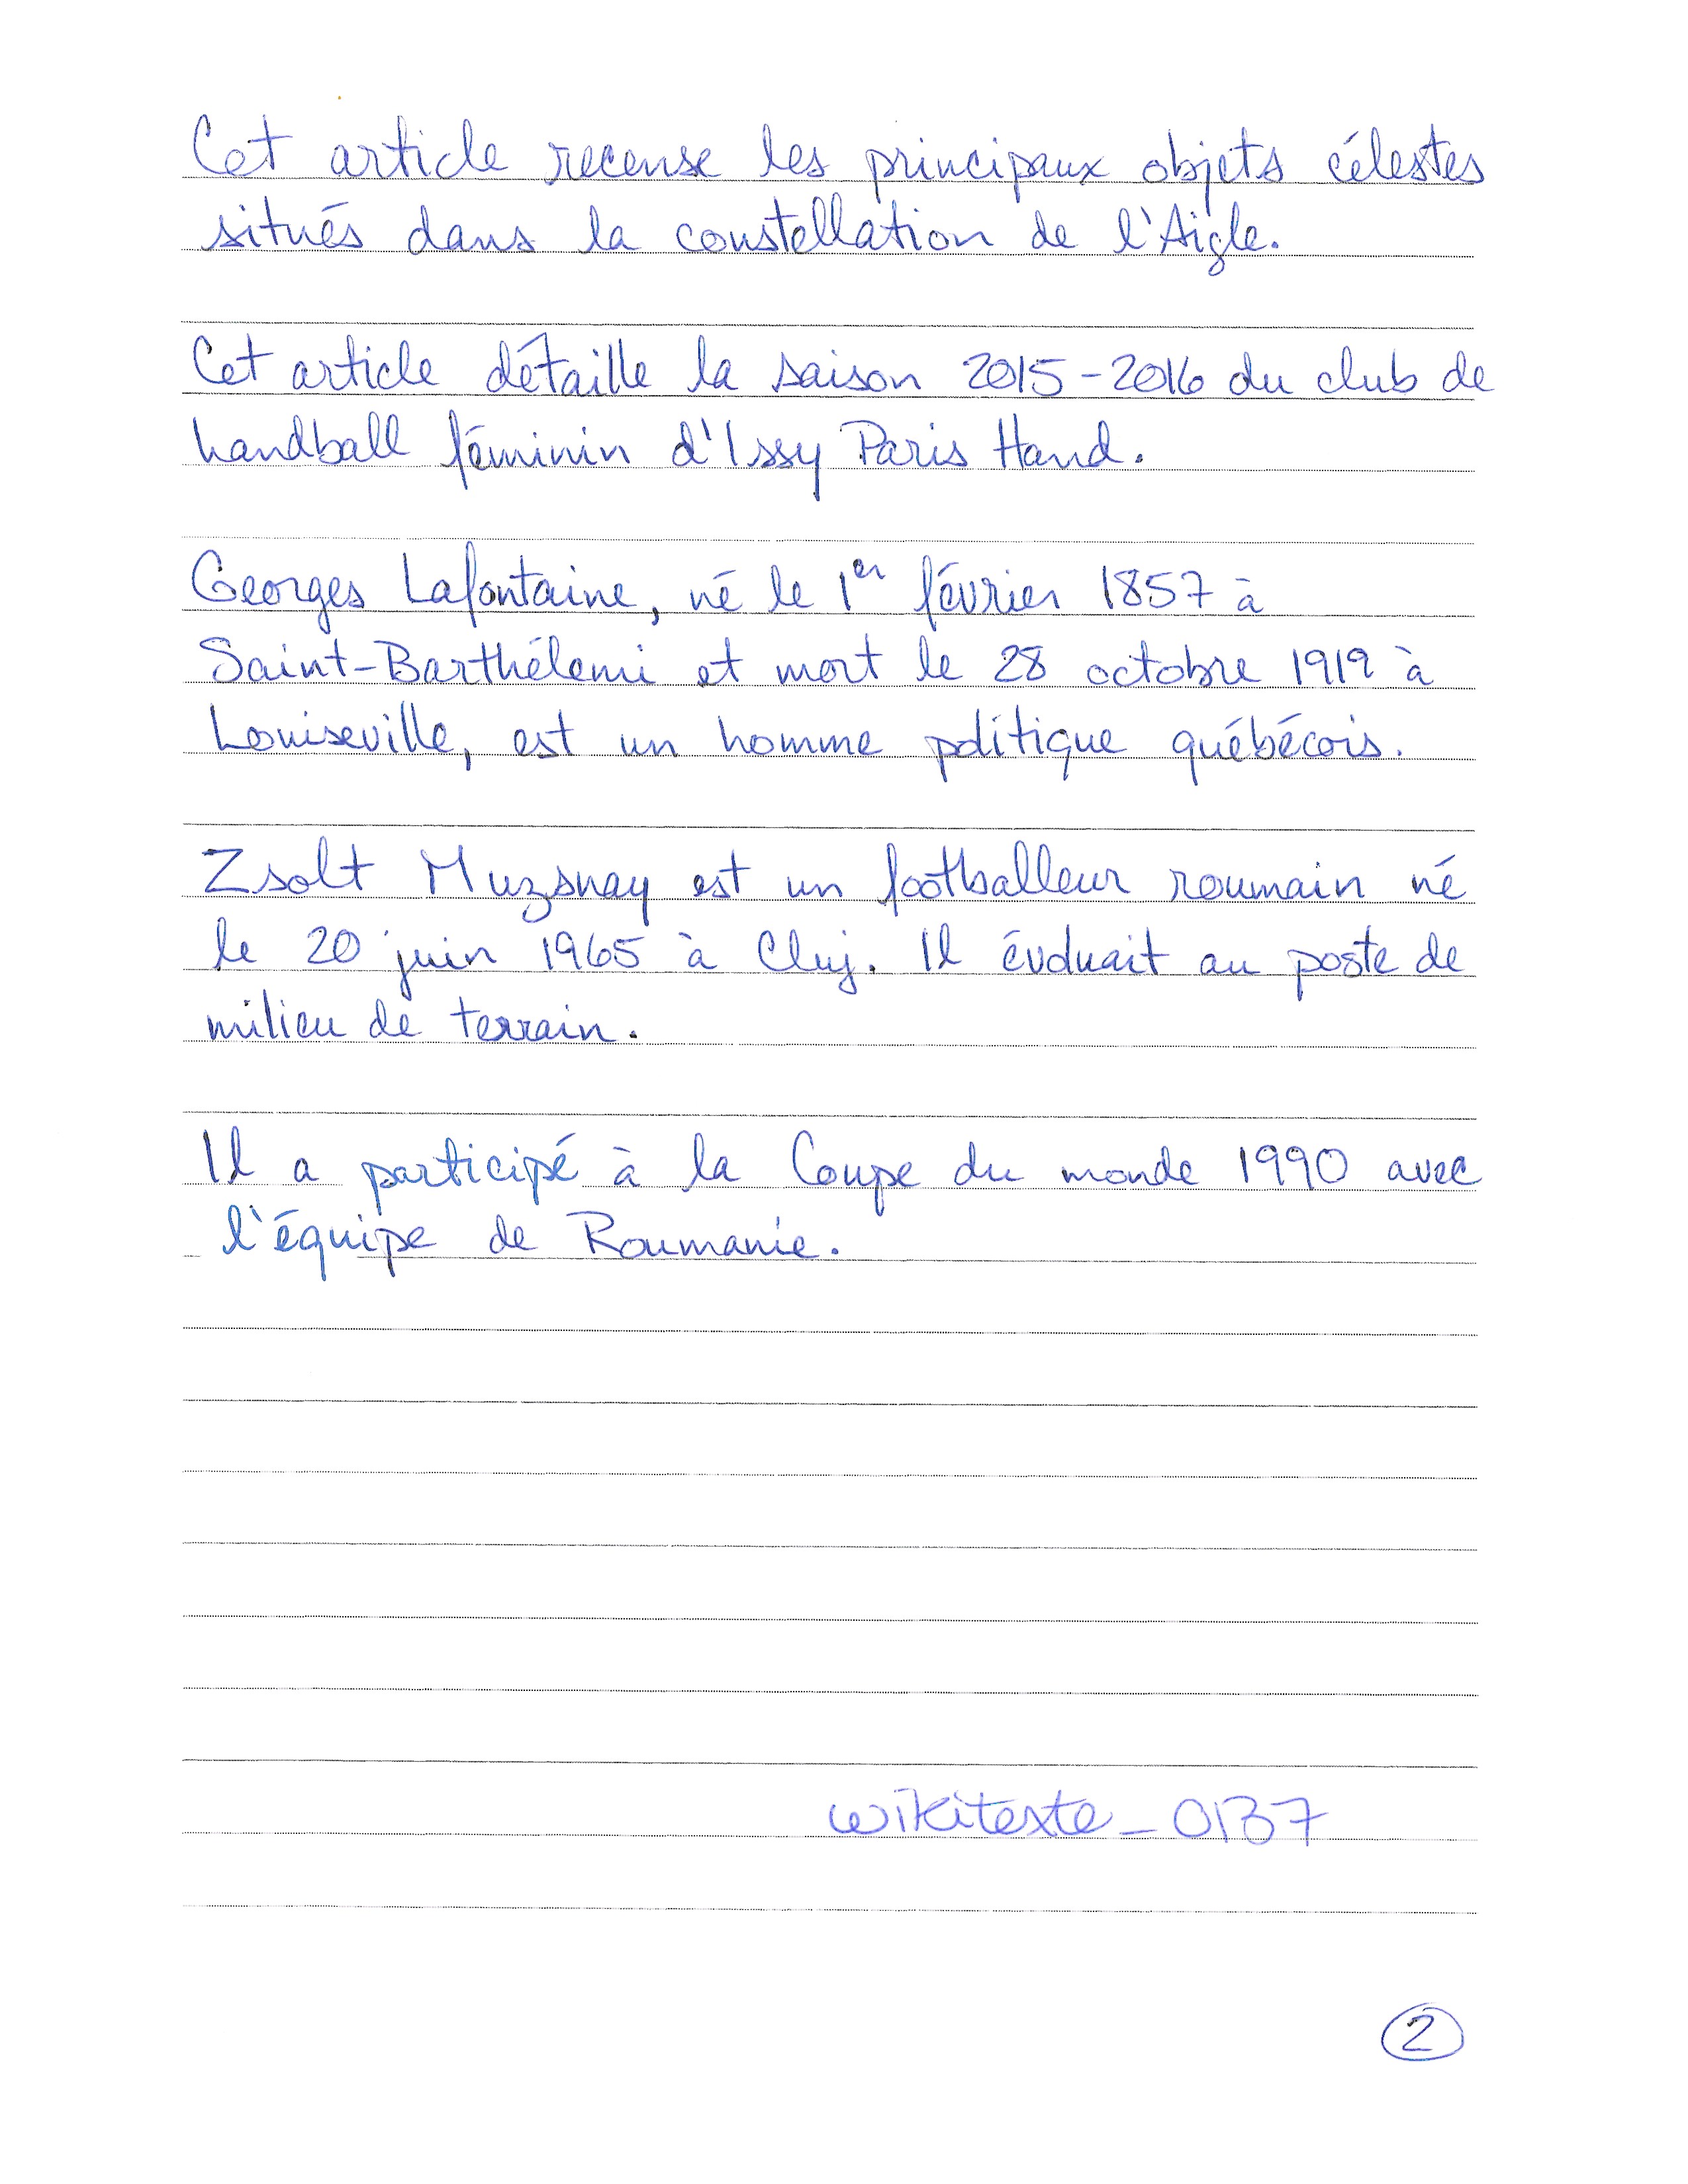 Cet article recense les principaux objets célestes
situés dans la constellation de l'Aigle.
Cet article détaille la saison 2015-2016 du club de
handball féminin d'Issy Paris Hand.
Georges Lafontaine, né le 1er février 1857 à
Saint-Barthélemi et mort le 28 octobre 1919 à
Louiseville, est un homme politique québécois.
Zsolt Muzsnay est un footballeur roumain né
le 20 juin 1965 à Cluj. Il évoluait au poste de
milieu de terrain.
Il a participé à la Coupe du monde 1990 avec
l'équipe de Roumanie.
wikitexte_0137
2